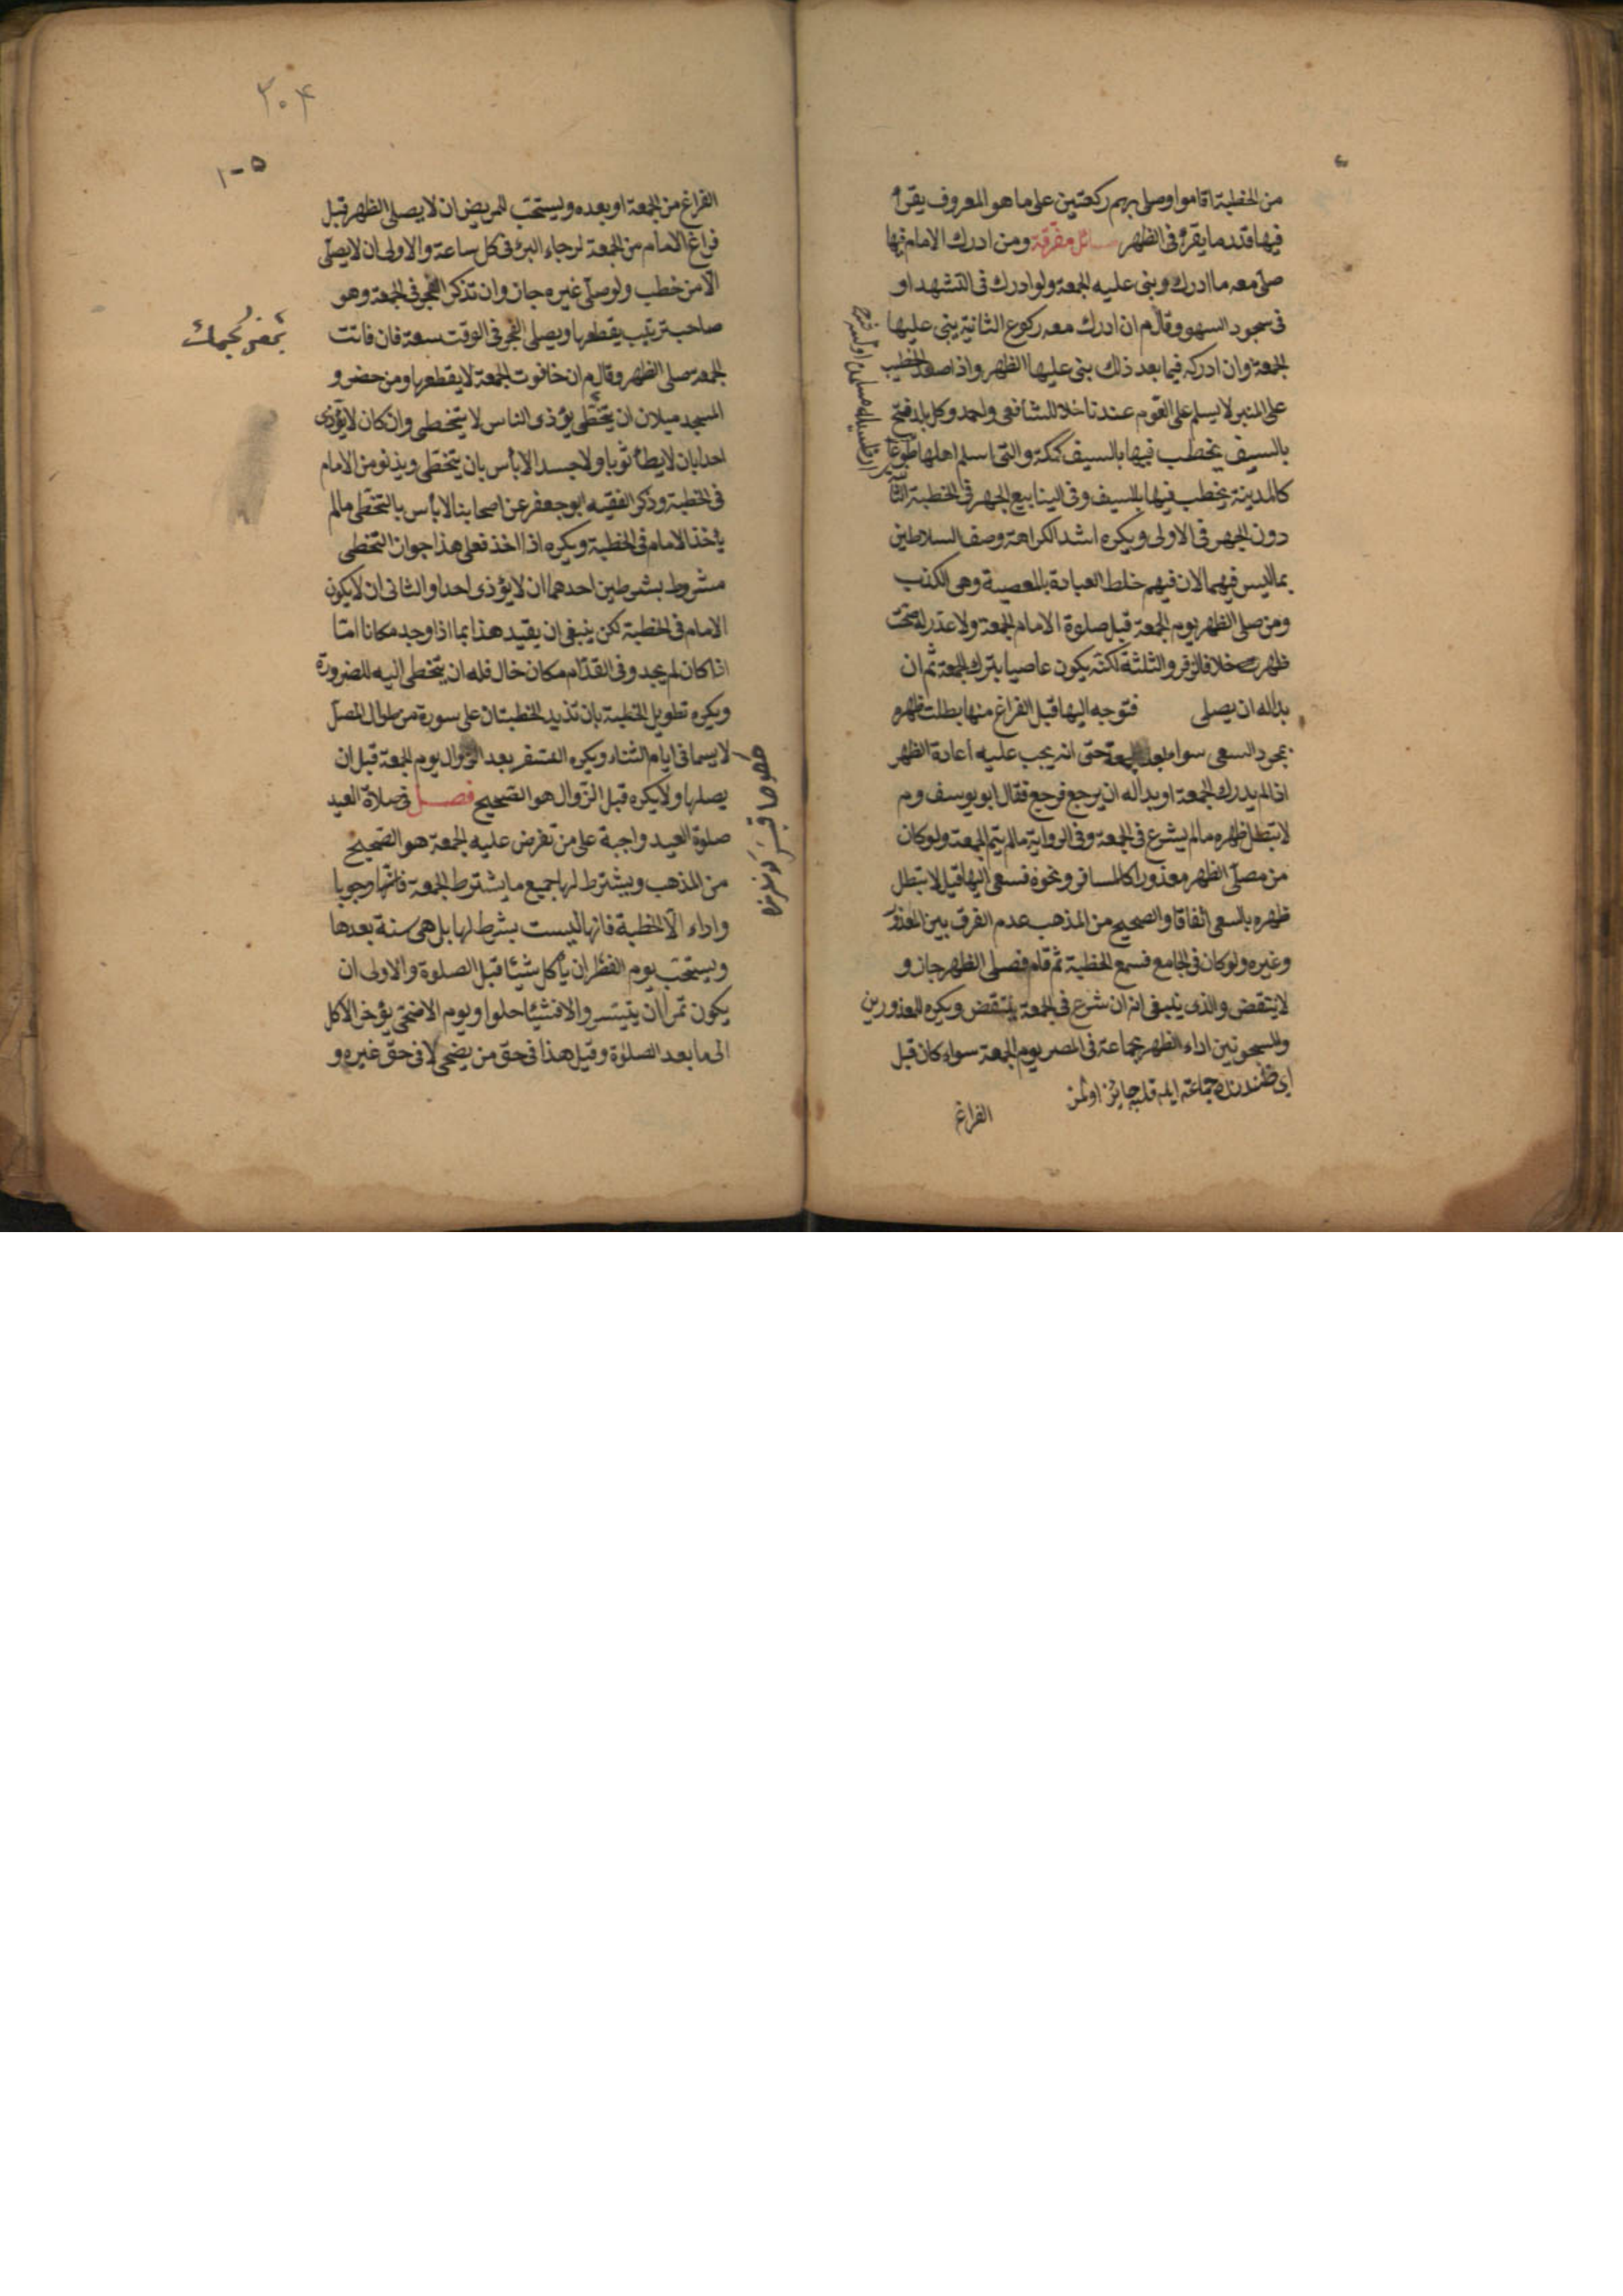 من الخطبة اقاموا وصلى بهم ركعتين على ما هو المعروف يقرأ
فيها قدر ما يقرأ فى الظهر مسائل متفرقة ومن ادرك الامام فيها
صلى معه ما ادرك وبنى عليه الجمعة ولو ادرك فى التشهد او
فى سجود السهو وقال م ان ادرك معه ركوع الثانية يبنى عليها
الجمعة وان ادركه فيما بعد ذلك بنى عليها الظهر واذا صعد الخطيب
على المنبر لا يسلم على القوم عندنا خلافا للشافعى واحمد وكل بلد فتح
بالسيف يخطب فيها بالسيف كمكة والتى اسلم اهلها طوعا
كالمدينة يخطب فيها بلا سيف وفى الينابيع الجهر فى الخطبة الثا
نية
دون الجهر فى الاولى ويكره اشد الكراهة وصف السلاطين
بما ليس فيهم الان فيهم خلط العبادة بالمعصية وهى الكذب
ومن صلى الظهر يوم الجمعة قبل صلوة الامام الجمعة ولا عذر له صحت
ظهره خلافا لزفر والثلثة لكنه يكون عاصيا بترك الجمعة ثم ان
بدا له ان يصلى فتوجه اليها قبل الفراغ منها بطلت ظهره
بمجرد السعى سواء حتى انه يجب عليه اعادة الظهر
اذا لم يدرك الجمعة او بدا له ان يرجع فرجع فقال ابو يوسف وم
لا تبطل ظهره ما لم يشرع فى الجمعة وفى الرواية ما لم يتم الجمعة ولو كان
من مصلى الظهر معذورا كالمسافر ونحوه فسعى اليها قيل لا تبطل
ظهره بالسعى اتفاقا والصحيح من المذهب عدم الفرق بين المعذور
وغيره ولو كان فى الجامع فسمع الخطبة ثم قام فصلى الظهر جاز و
لا ينتقض والذى ينبغى انه ان شرع فى الجمعة ينتقض ويكره للمعذورين
والمسجونين اداء الظهر بجماعة فى المصر يوم الجمعة سواء كان قبل
الفراغ
٣٠۴
١-٥
الفراغ من الجمعة او بعده ويستحب للمريض ان لا يصلى الظهر قبل
فراغ الامام من الجمعة لرجاء البرئ فى كل ساعة والاولى ان لا يصلى
الا من خطب ولو صلى غيره جاز وان تذكر الفجر فى الجمعة وهو
صاحب ترتيب يقطعها ويصلى الفجر فى الوقت سعة فان فاتت
الجمعة صلى الظهر وقال م ان خاف فوت الجمعة لا يقطعها ومن حضر و
المسجد ميلان ان يتخطى يؤذى الناس لا يتخطى وان كان لا يؤذى
احدا بان لا يطأ ثوبا ولا جسدا لا بأس بان يتخطى ويدنو من الامام
فى الخطبة وذكر الفقيه ابو جعفر عن اصحابنا لا بأس بالتخطى ما لم
يأخذ الامام فى الخطبة ويكره اذا اخذ فعلى هذا جواز التخطى
مشروط بشرطين احدهما ان لا يؤذى احدا والثانى ان لا يكون
الامام فى الخطبة لكن ينبغى ان يقيد هذا بما اذا وجد مكانا اما
اذا كان لم يجد وفى القدام مكان خال فله ان يتخطى اليه للضرورة
ويكره تطويل الخطبة بان تزيد الخطبتان على سورة من طوال المفصل
لا سيما فى ايام الشتاء ويكره السفر بعد الزوال يوم الجمعة قبل ان
يصلها ولا يكره قبل الزوال هو الصحيح فصل فى صلاة العيد
صلوة العيد واجبة على من تفرض عليه الجمعة هو الصحيح
من المذهب ويشترط لها جميع ما يشترط للجمعة فانها وجوبا
واداء الا الخطبة فانها ليست بشرط لها بل هى سنة بعدها
ويستحب يوم الفطر ان يأكل شيئا قبل الصلوة والاولى ان
يكون تمرا ان يتيسر والا فشيئا حلوا ويوم الاضحى يؤخر الاكل
الى ما بعد الصلوة وقيل هذا فى حق من يضحى لا فى حق غيره و